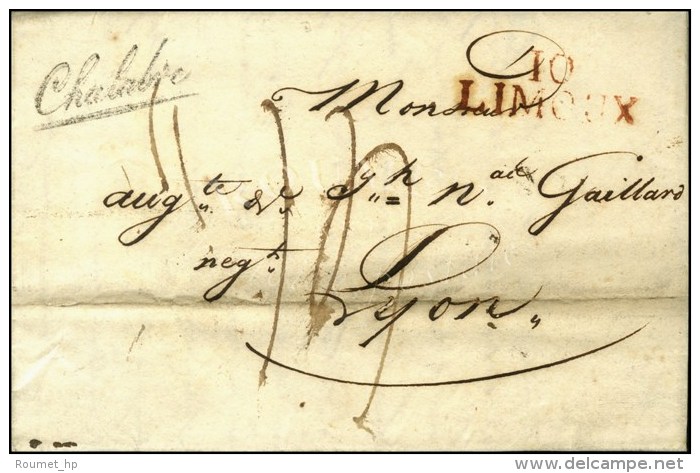 Chalabre
10
LIMOUX
Monsieur
aug.te & J.h n. Gaillard
neg.t
Lyon
Roumet_hp
www.delcampe.net